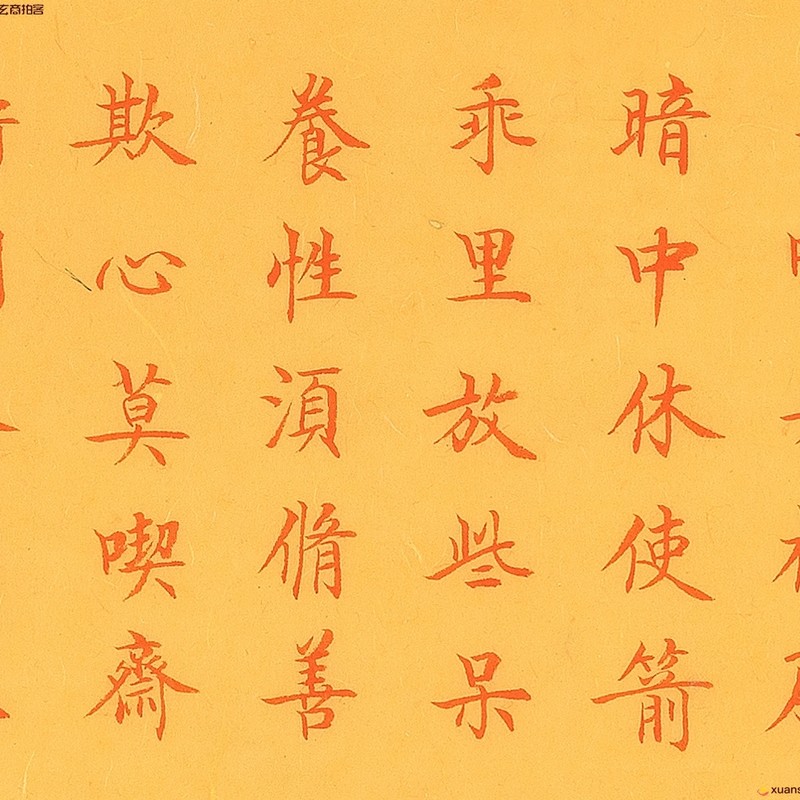 暗中休使箭
乖里放些呆
養性湏脩善
欺心莫喫齋
玄商拍客